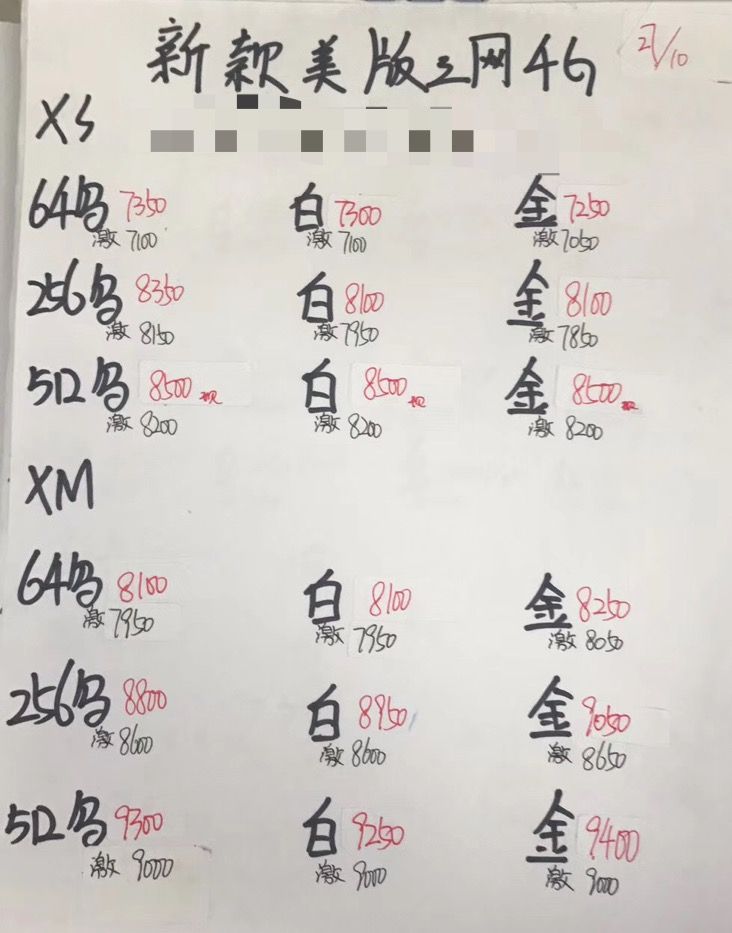 新款美版三网4G 27/10
XS
64乌 7350 白 7300 金 7250
激 7100 激 7100 激 7050
256乌 8350 白 8100 金 8100
激 8150 激 7950 激 7850
512乌 8500 现 白 8500 现 金 8500 现
激 8200 激 8200 激 8200
XM
64乌 8100 白 8100 金 8250
激 7950 激 7950 激 8050
256乌 8800 白 8950 金 9050
激 8600 激 8600 激 8650
512乌 9300 白 9250 金 9400
激 9000 激 9000 激 9000